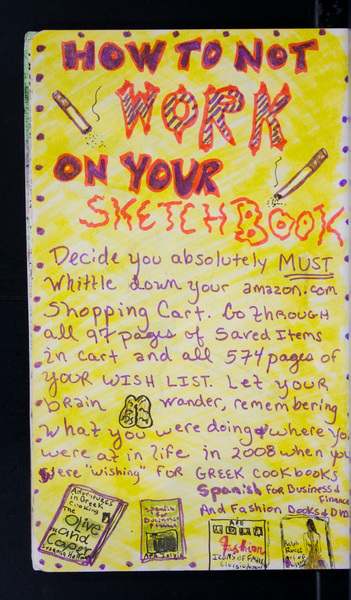 HOW TO NOT
WORK
ON YOUR
SKETCHBOOK
Decide you absolutely MUST
whittle down your amazon.com
Shopping Cart. Go THROUGH
all 97 pages of Saved Items
in cart and all 574 pages of
YOUR WISH LIST. Let YOUR
brain wander, remembering
what you were doing & where you
were at in life in 2008 when you
were "wishing" FOR GREEK COOKBOOKS
Spanish FOR Business &
Finance
And Fashion Books & DVDs
Adventures
in Greek
Cooking
The
Olive
and
Caper
Susanna
Spanish
for
Business
Fashion
Ralph